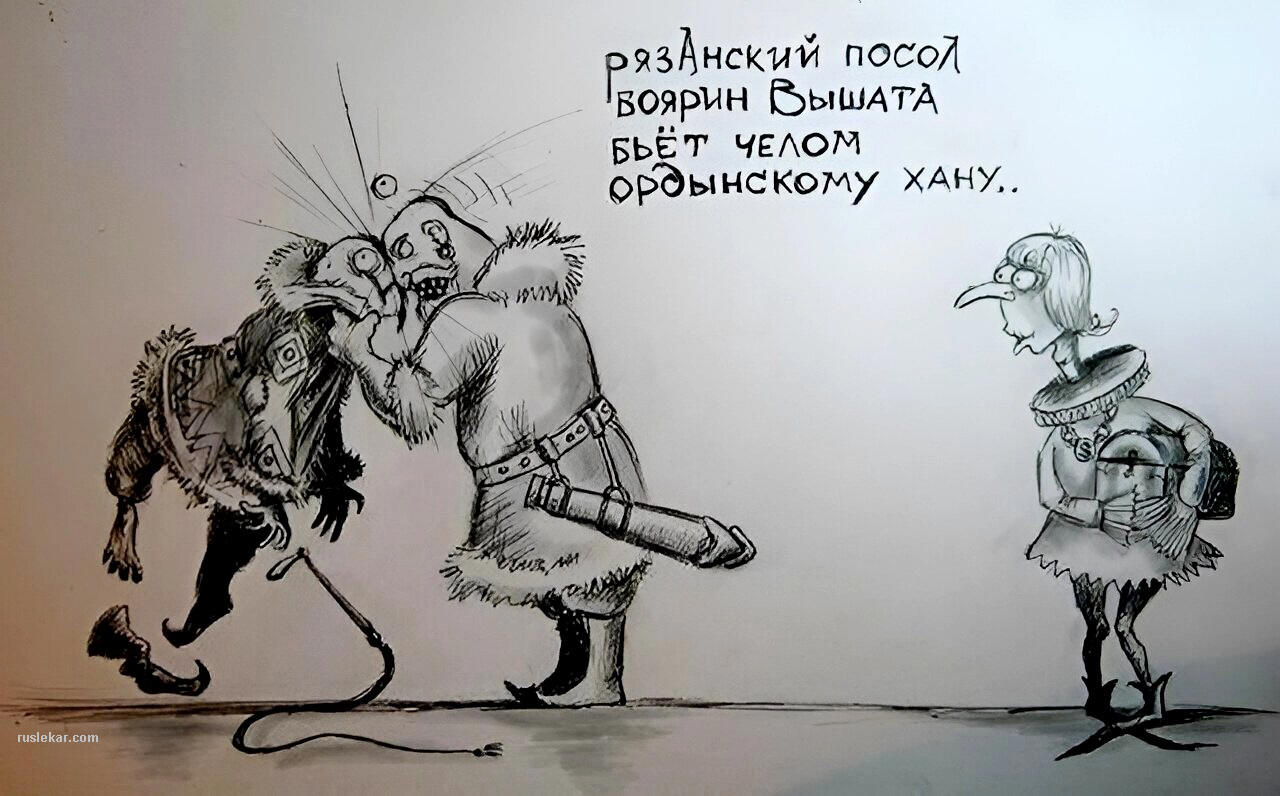 рязАнский посол
боярин Вышата
бьёт челом
ордынскому хану..
ruslekar.com